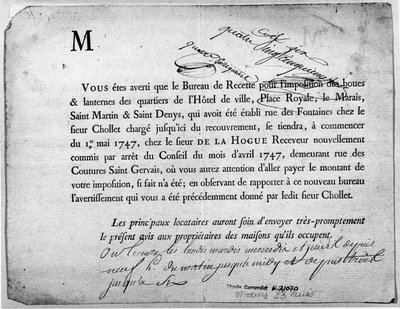 M
Vous êtes averti que le Bureau de Recette pour l'imposition des boues
& lanternes des quartiers de l'Hôtel de ville, Place Royale, le Marais,
Saint Martin & Saint Denys, qui avoit été établi rue des Fontaines chez le
sieur Chollet chargé jusqu'ici du recouvrement, se tiendra, à commencer
du 1.er mai 1747, chez le sieur DE LA HOGUE Receveur nouvellement
commis par arrêt du Conseil du mois d'avril 1747, demeurant rue des
Coutures Saint Gervais, où vous aurez attention d'aller payer le montant
de votre imposition, si fait n'a été; en observant de rapporter à ce nouveau bureau
l'avertissement qui vous a été précédemment donné par ledit sieur Chollet.
Les principaux locataires auront soin d'envoyer très-promptement
le présent avis aux propriétaires des maisons qu'ils occupent.
On les lundis mardis mercredis et jeudi depuis
neuf h. du matin jusqu'à midy et depuis trois
jusqu'à
Musée Carnavalet